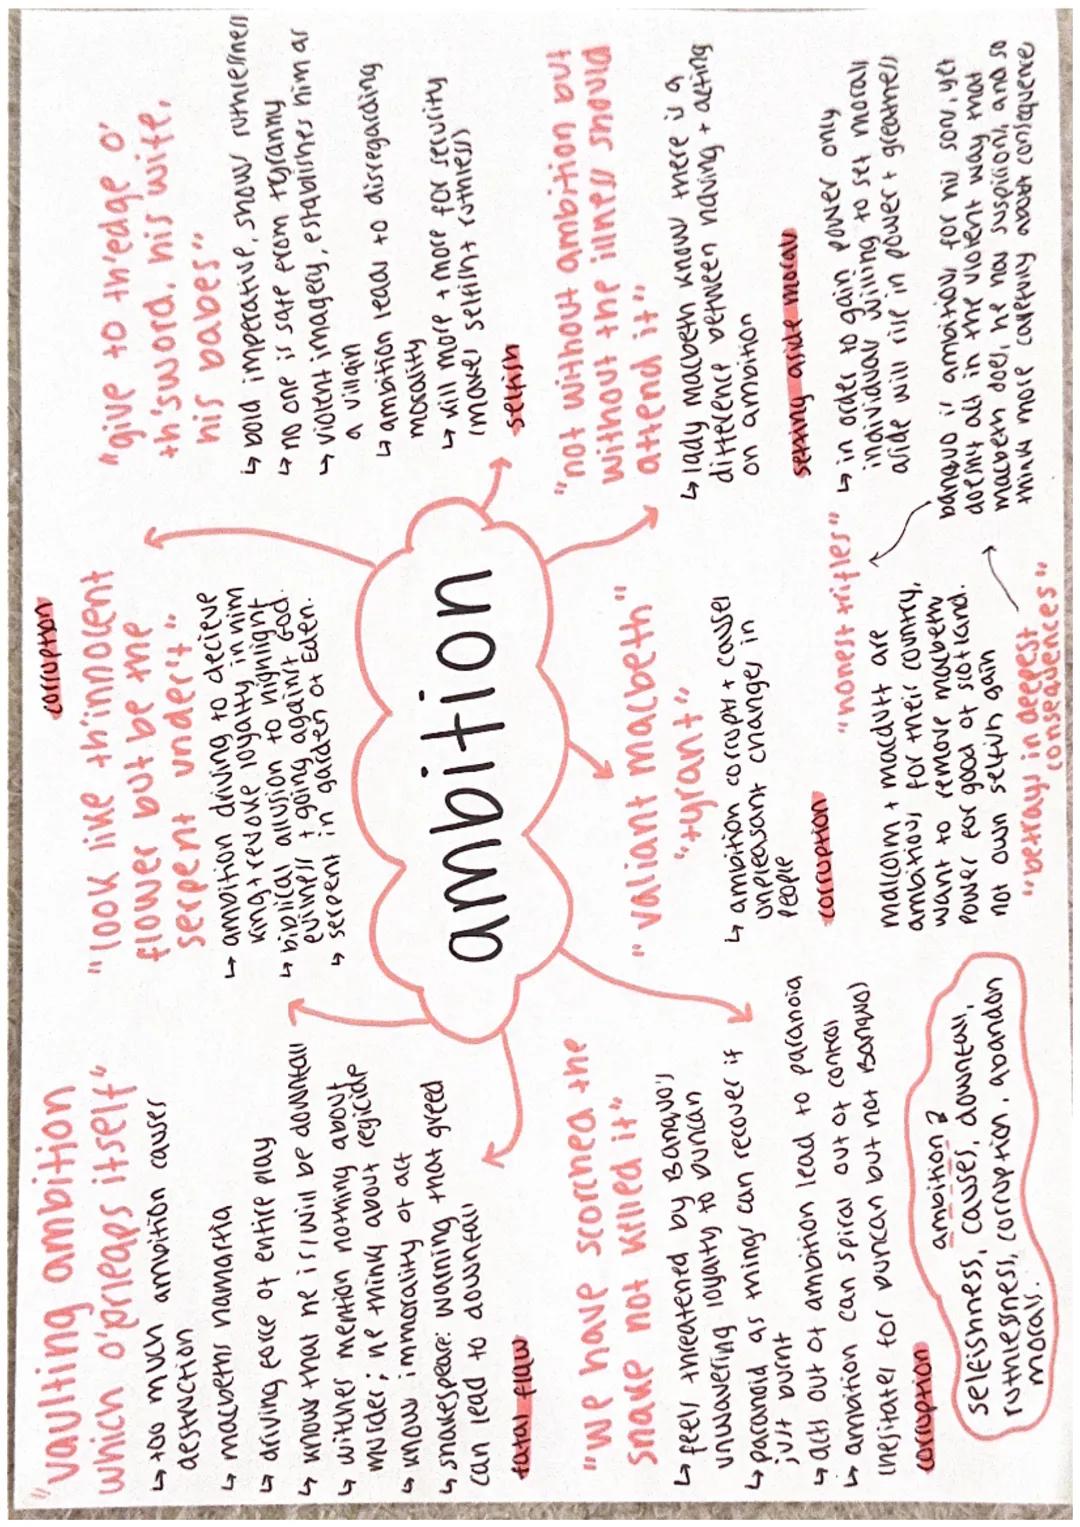 "vaulting ambition
which o'erleaps itself"
↳ too much ambition causes
destruction
↳ macbeths hamartia
↳ driving force of entire play
↳ knows that he is/will be downfall
↳ witches mention nothing about
murder; he thinks about regicide
↳ knows immorality of act
↳ shakespeare warning that greed
can lead to downfall
fatal flaw
"look like th'innocent
flower but be the
serpent under't"
↳ ambition driving to decieve
king + revoke loyalty in him
↳ biblical allusion to highlight
evilness + going against God.
↳ serpent in garden of Eden.
corruption
"give to th'edge o'
th'sword. his wife,
his babes"
↳ bold imperative, show ruthlessness
↳ no one is safe from tyranny
↳ violent imagery, establishes him as
a villain
↳ ambition leads to disregarding
morality
↳ will more + more for security
(makes selfish + ruthless)
selfish
ambition
"we have scorched the
snake not killed it"
↳ feels threatened by Banquo's
unwavering loyalty to Duncan
↳ paranoid as things can recover if
just burnt
↳ acts out of ambition lead to paranoia
↳ ambition can spiral out of control
(hesitates for Duncan but not Banquo)
corruption
"valiant macbeth"
"tyrant"
↳ ambition corrupts + causes
unpleasant changes in
people
corruption
"not without ambition but
without the illness should
attend it"
↳ lady macbeth knows there is a
difference between having + acting
on ambition
setting aside morals
↳ in order to gain power only
individuals willing to set morals
aside will rise in power + greatness
ambition?
selfishness, causes, downfall,
ruthlessness, corruption, abandon
morals.
malcolm + macduff are
ambitious for their country,
want to remove macbeth
power for good of scotland.
not own selfish gain
"honest trifles"
"betrays in deepest
consequences"
banquo is ambitious for his son, yet
doesn't act in the violent way that
macbeth does, he has suspicions and so
thinks more carefully about consequences